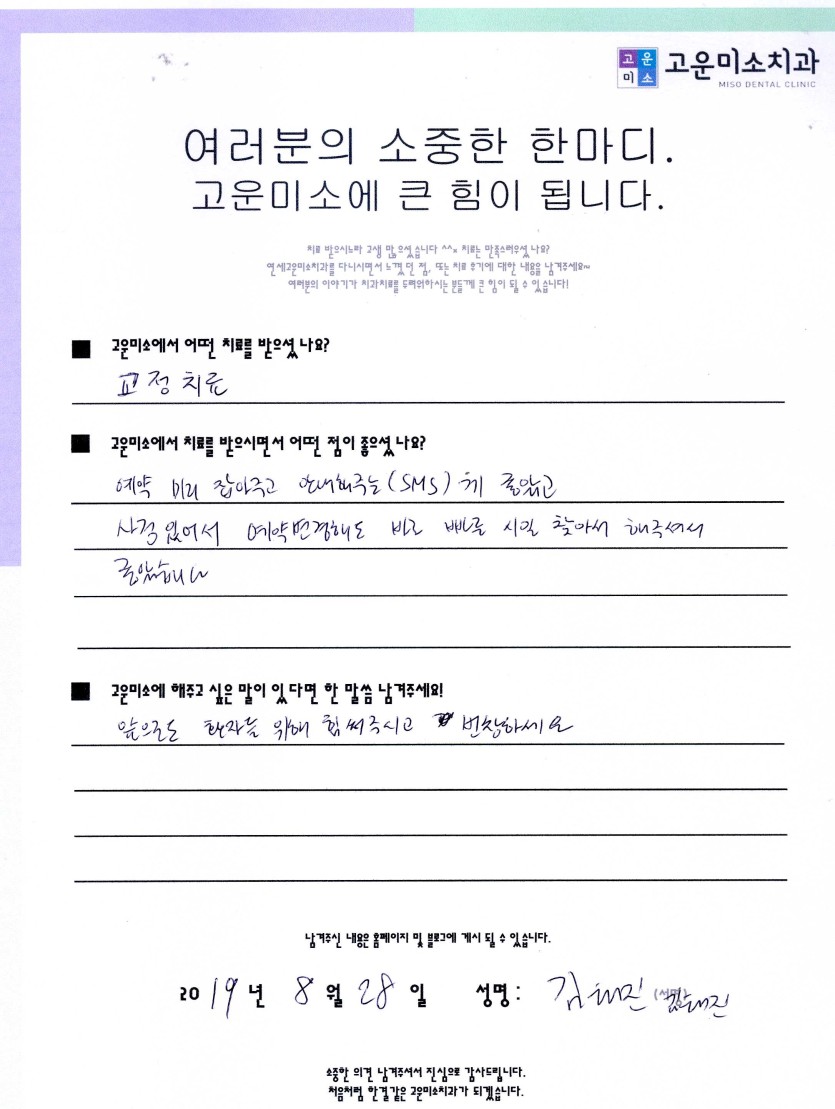 고운미소
고운미소치과
MISO DENTAL CLINIC
여러분의 소중한 한마디.
고운미소에 큰 힘이 됩니다.
치료 받으시느라 고생 많으셨습니다 ^^* 치료는 만족스러우셨나요?
연세고운미소치과를 다니시면서 느꼈던 점, 또는 치료 후기에 대한 내용을 남겨주세요~
여러분의 이야기가 치과치료를 두려워하시는 분들께 큰 힘이 될 수 있습니다!
■ 고운미소에서 어떤 치료를 받으셨나요?
교정 치료
■ 고운미소에서 치료를 받으시면서 어떤 점이 좋으셨나요?
예약 미리 잡아주고 안내해주는(SMS) 게 좋았고
사정 있어서 예약변경해도 바로 빠른 시일 찾아서 해주셔서
좋았습니다
■ 고운미소에 해주고 싶은 말이 있다면 한 말씀 남겨주세요!
앞으로도 환자들 위해 힘써주시고 번창하세요
남겨주신 내용은 홈페이지 및 블로그에 게시 될 수 있습니다.
2019년 8월 28일 성명: 김 (서명)
소중한 의견 남겨주셔서 진심으로 감사드립니다.
처음처럼 한결같은 고운미소치과가 되겠습니다.